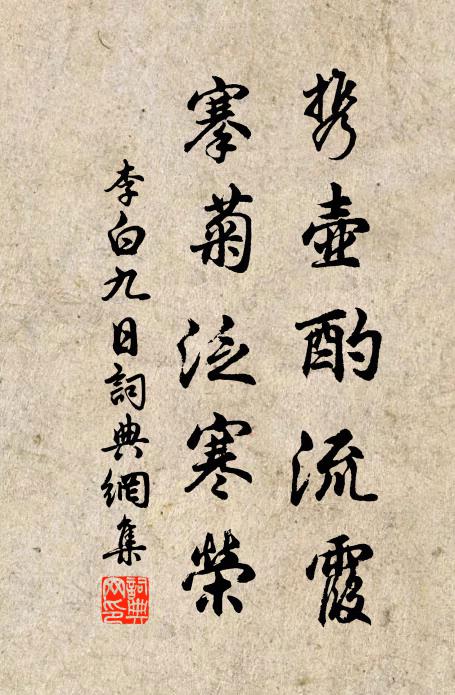 携壺酌流霞
搴菊泛寒榮
李白九日詞典網集
詞典网印